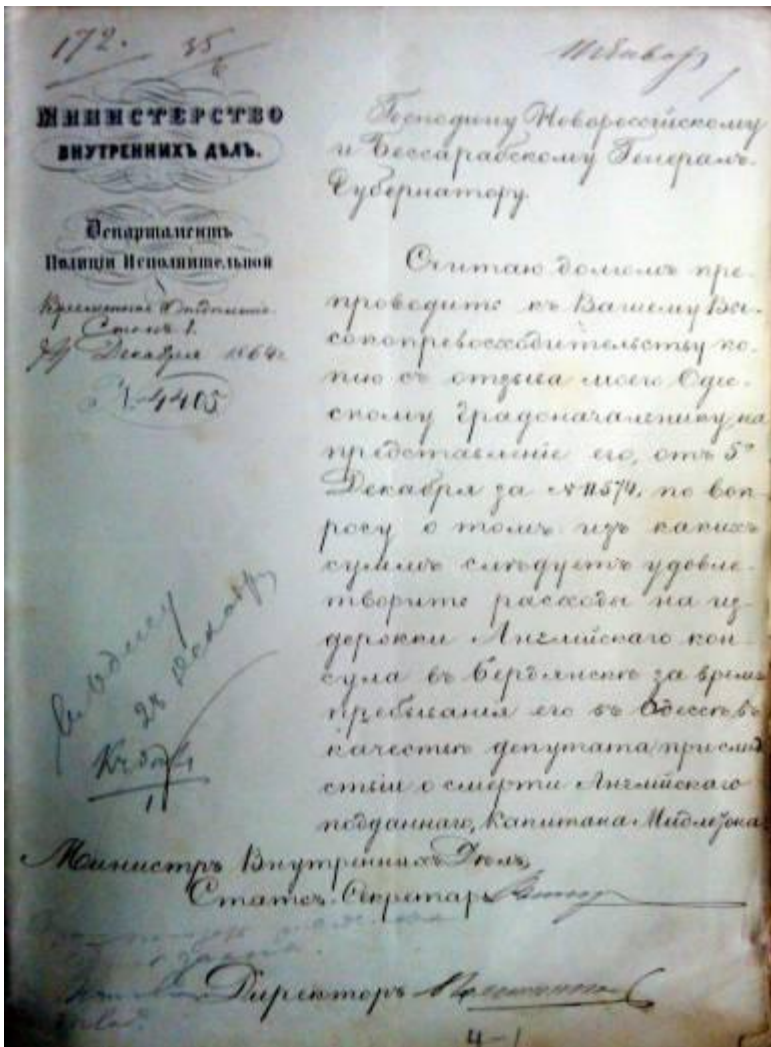 172. 35
МИНИСТЕРСТВО
ВНУТРЕННИХЪ ДѢЛЪ.
Департаментъ
Полиціи Исполнительной
Столъ 1.
Декабря 1864 г.
№ 4405
Господину Новороссійскому
и Бессарабскому Генералъ-
Губернатору.
Считаю долгомъ пре-
проводить къ Вашему Вы-
сокопревосходительству ко-
пію съ отзыва моего Одес-
скому Градоначальнику, на
представленіе его, отъ 5го
Декабря за № 11574, по воп-
росу о томъ изъ какихъ
суммъ слѣдуетъ удовле-
творить расходы на из-
держки Англійскаго кон-
сула въ Бердянскѣ за время
пребыванія его въ Одессѣ, въ
качествѣ депутата при слѣд-
ствіи о смерти Англійскаго
подданнаго, Капитана Мидлетона.
28 Декабр
Министръ Внутреннихъ Дѣлъ,
Статсъ-Секретарь
Директоръ
4-1